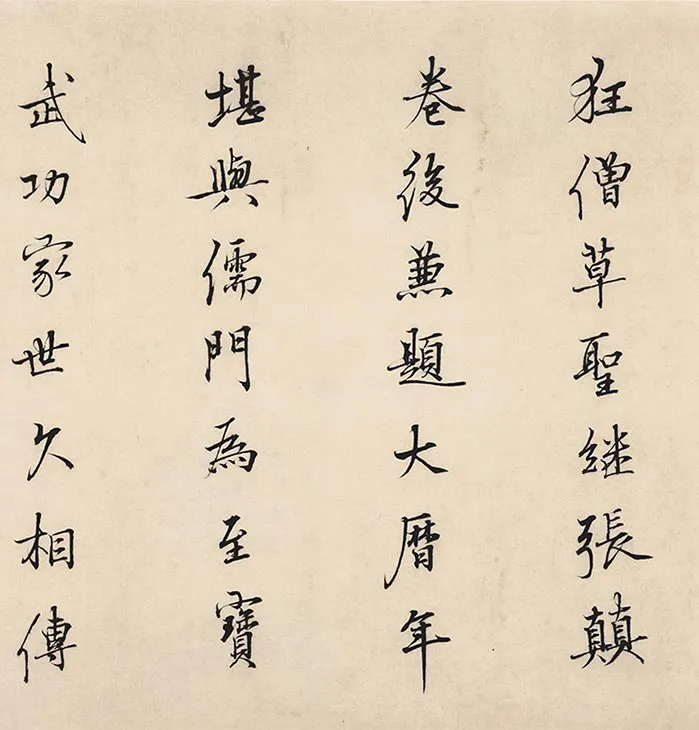 狂僧草聖继張顛
卷後兼題大曆年
堪與儒門為至寶
武功家世久相傳